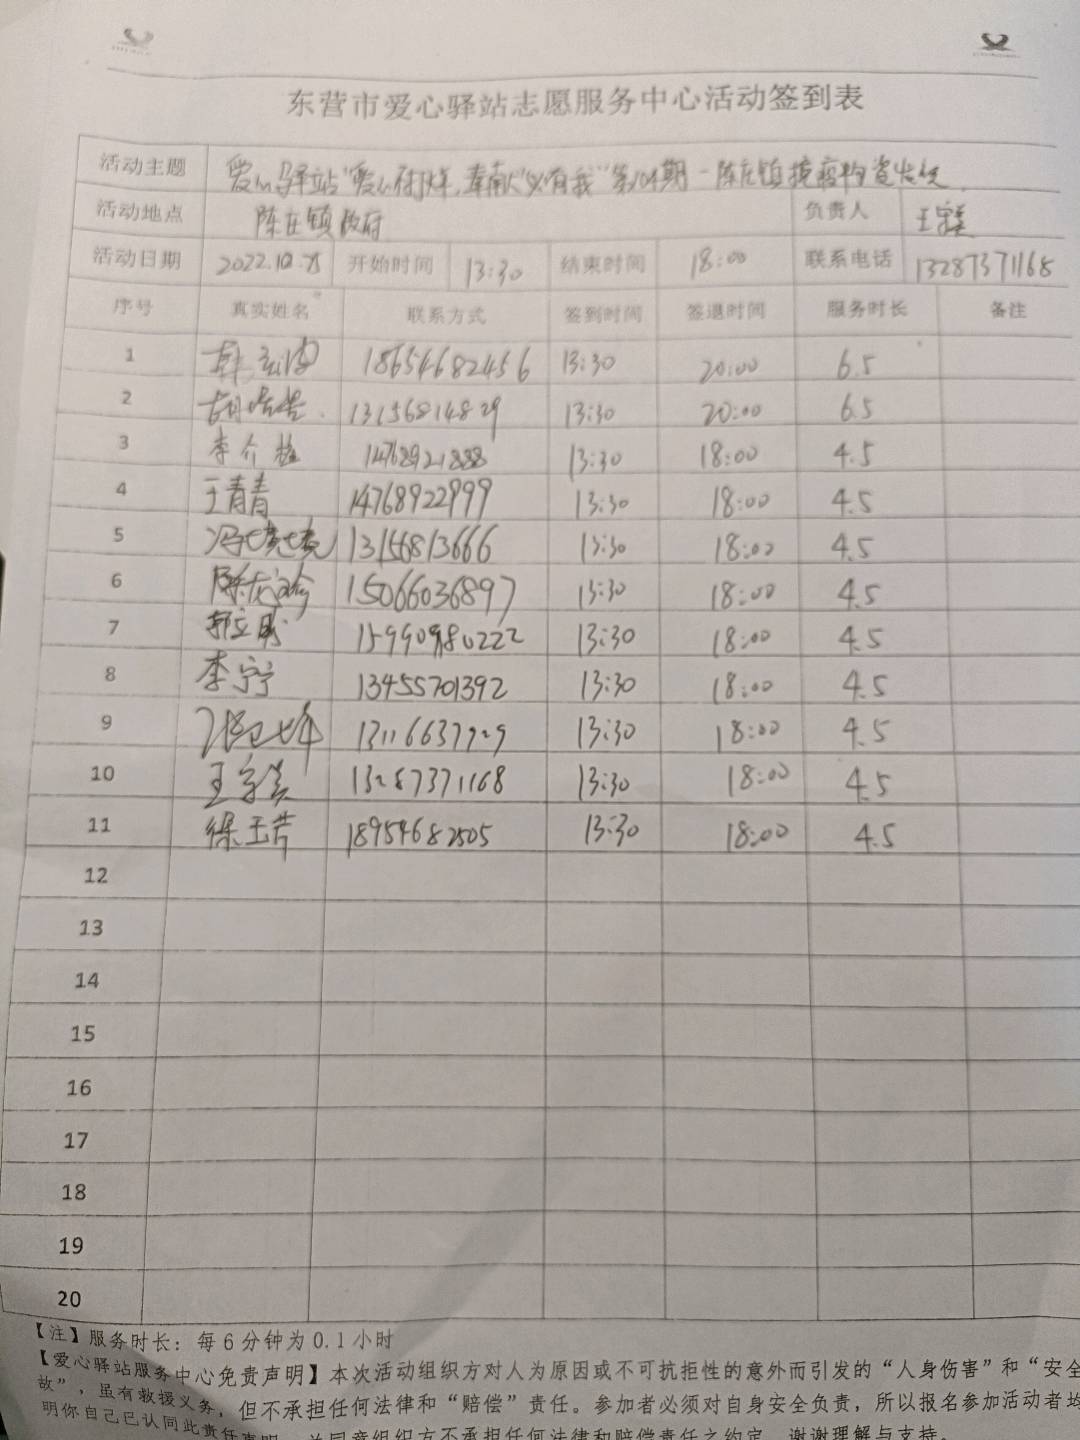 东营市爱心驿站志愿服务中心活动签到表
活动主题 爱心驿站"爱心 有我"第104期-陈庄镇 物资
活动地点 陈庄镇政府 负责人
活动日期 2022.10. 开始时间 13:30 结束时间 18:00 联系电话 13287371168
序号 真实姓名 联系方式 签到时间 签退时间 服务时长 备注
1 18654682456 13:30 20:00 6.5
2 胡 13156814829 13:30 20:00 6.5
3 李介 14768921888 13:30 18:00 4.5
4 王青青 14768922999 13:30 18:00 4.5
5 冯 13156813666 13:30 18:00 4.5
6 陈 15066036897 13:30 18:00 4.5
7 郭立 15990980222 13:30 18:00 4.5
8 李宁宁 13455701392 13:30 18:00 4.5
9 13:30 18:00 4.5
10 王 13287371168 13:30 18:00 4.5
11 徐玉芹 18954682505 13:30 18:00 4.5
12
13
14
15
16
17
18
19
20
【注】服务时长：每6分钟为0.1小时
【爱心驿站服务中心免责声明】本次活动组织方对人为原因或不可抗拒性的意外而引发的“人身伤害”和“安全
故”，虽有救援义务，但不承担任何法律和“赔偿”责任。参加者必须对自身安全负责，所以报名参加活动者均
明你自己已认同此责任声明，并同意组织方不承担任何法律和赔偿责任之约定，谢谢理解与支持。